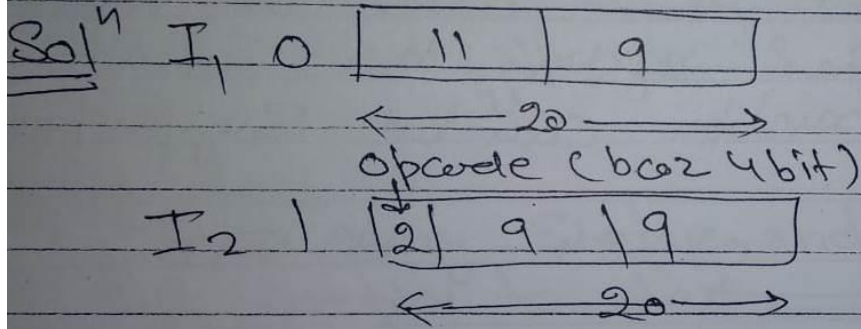 Solⁿ I₁ 0 | 11 | 9
20
opcode (bcoz 4 bit)
I₂ 1 |2| 9 | 9
20